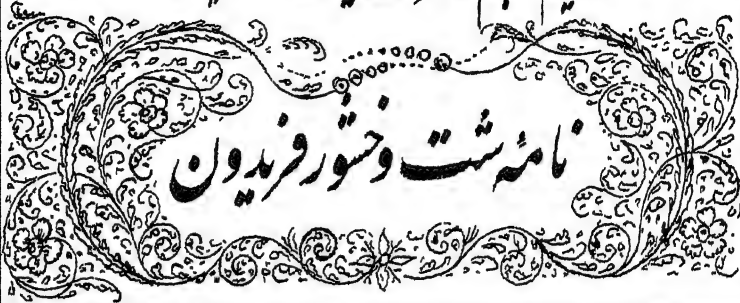 نامۀ شت وخشور فریدون